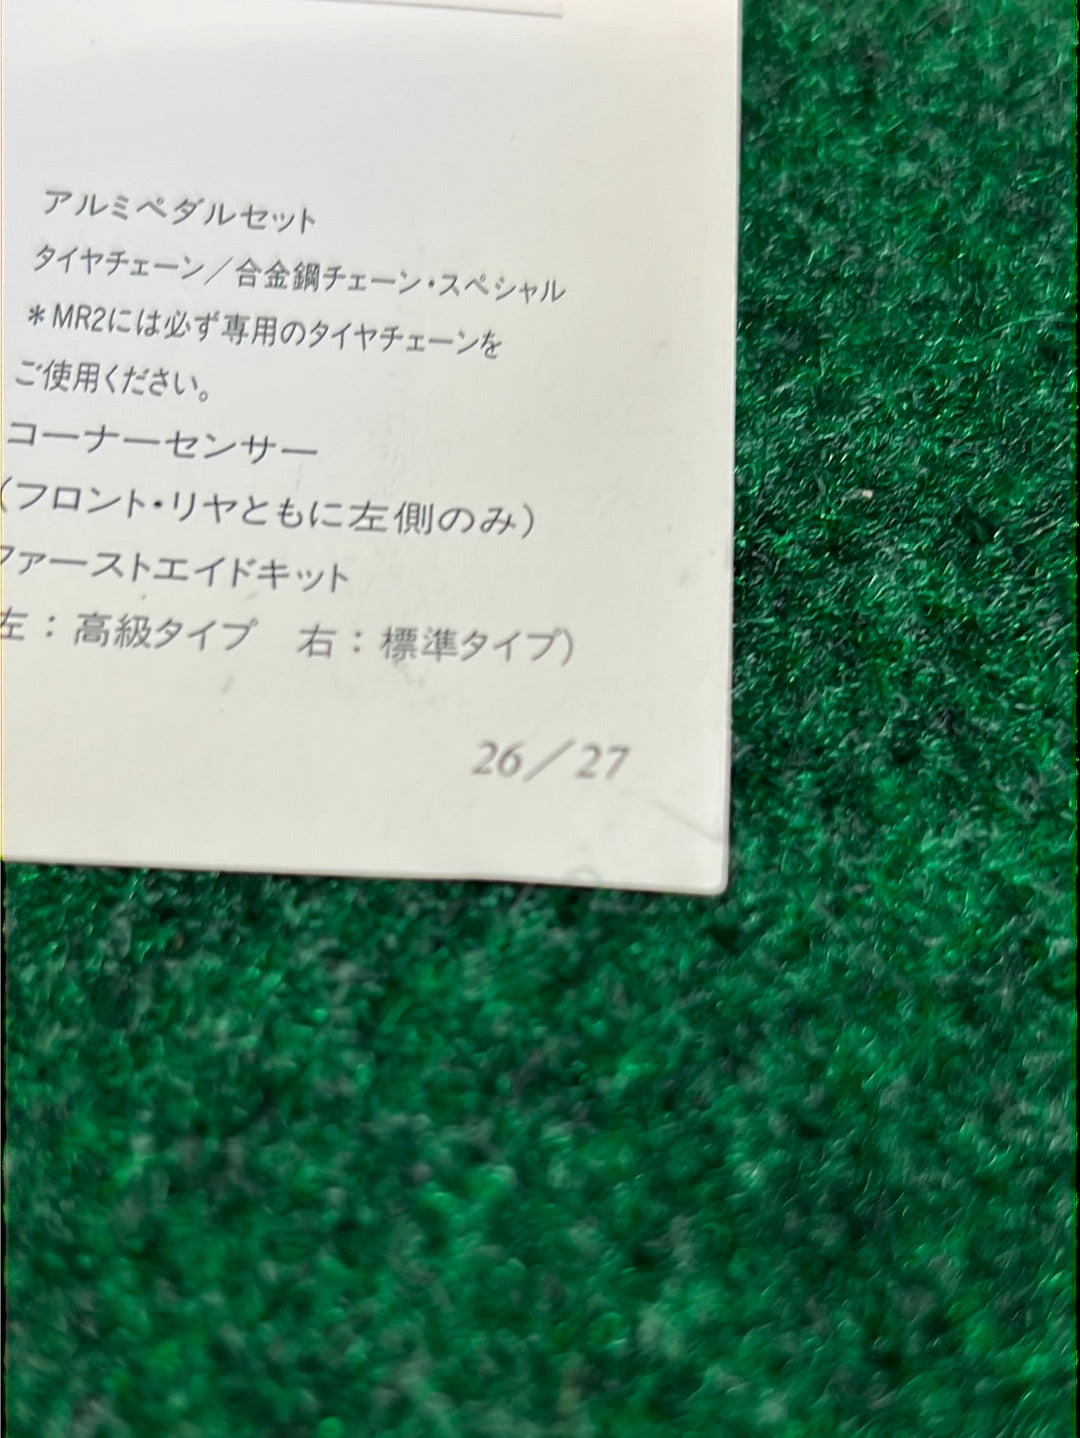 アルミペダルセット
タイヤチェーン／合金鋼チェーン・スペシャル
＊MR2には必ず専用のタイヤチェーンを
ご使用ください。
コーナーセンサー
（フロント・リヤともに左側のみ）
ファーストエイドキット
左：高級タイプ　右：標準タイプ）
26／27